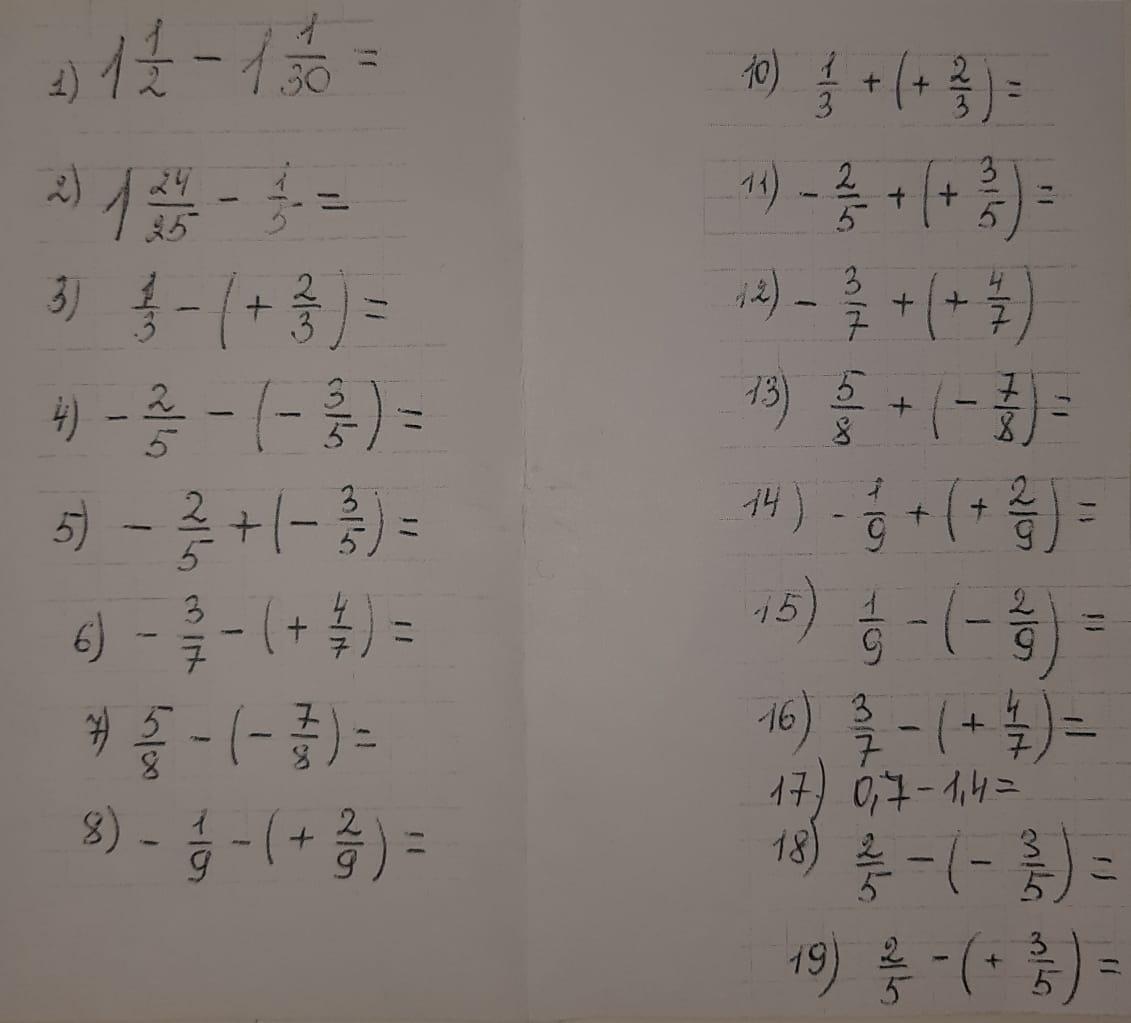 1) 1 1/2 - 1 1/30 =
2) 1 24/25 - 1/5 =
3) 1/3 - (+ 2/3) =
4) - 2/5 - (- 3/5) =
5) - 2/5 + (- 3/5) =
6) - 3/7 - (+ 4/7) =
7) 5/8 - (- 7/8) =
8) - 1/9 - (+ 2/9) =
10) 1/3 + (+ 2/3) =
11) - 2/5 + (+ 3/5) =
12) - 3/7 + (+ 4/7)
13) 5/8 + (- 7/8) =
14) - 1/9 + (+ 2/9) =
15) 1/9 - (- 2/9) =
16) 3/7 - (+ 4/7) =
17) 0,7 - 1,4 =
18) 2/5 - (- 3/5) =
19) 2/5 - (+ 3/5) =